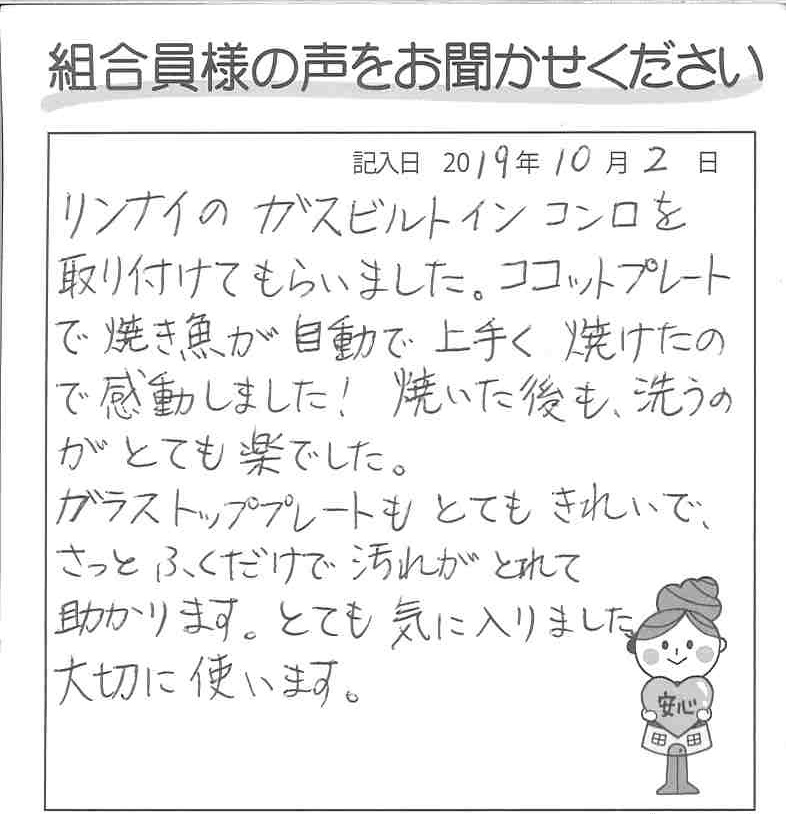 組合員様の声をお聞かせください
記入日 2019年10月2日
リンナイの ガスビルトインコンロを
取り付けてもらいました。ココットプレート
で焼き魚が自動で上手く焼けたの
で感動しました！ 焼いた後も、洗うの
がとても楽でした。
ガラストッププレートもとてもきれいで、
さっとふくだけで汚れがとれて
助かります。とても気に入りました。
大切に使います。
安心